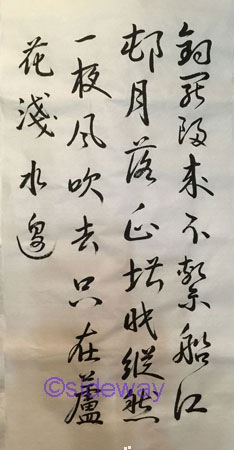 釣罷歸來不繫船江
邨月落正堪眠縱然
一夜風吹去只在蘆
花淺水邊
©sideway